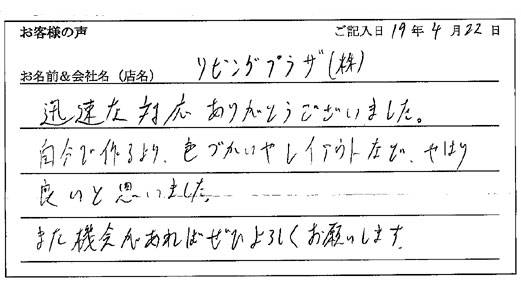 お客様の声 ご記入日 19年 4月 22日
お名前&会社名(店名) リビングプラザ(株)
迅速な対応ありがとうございました。
自分で作るより、色づかいやレイアウトなど、やはり
良いと思いました。
また機会があればぜひよろしくお願いします。